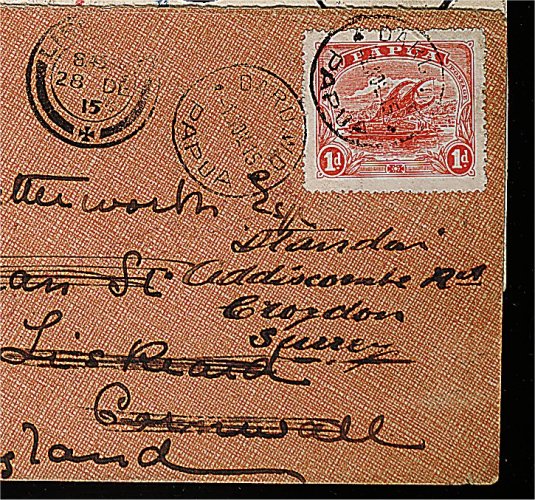 8
28 DE
15
DARU
PAPUA
DARU
PAPUA
PAPUA
1d
1d
tterworth Esq
"Standar"
Addiscombe Rd
Croydon
Surrey
an St
Liskeard
Cornwall
gland